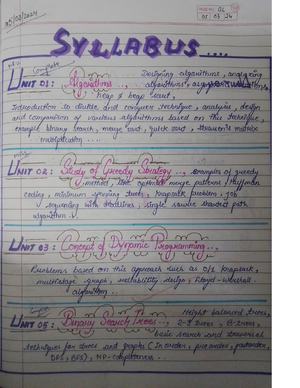 05/03/2024
PAGE NO 01
DATE 05/03/24
SYLLABUS....
Complete
UNIT 01: Algorithms, Designing algorithms, analyzing
algorithms, asymptotic notations,
heap & heap sort,
Introduction to divide and conquer technique, analysis, design
and comparison of various algorithms based on this technique,
example binary search, merge sort, quick sort, strassen's matrix
multiplication....
UNIT 02: Study of Greedy Strategy.., examples of greedy
method, like optimal merge patterns, Huffman
coding, minimum spanning trees, knapsack problem, job
sequencing with deadlines, single source shortest path
algorithm
UNIT 03: Concept of Dynamic Programming..,
Problems based on this approach such as 0/1 knapsack,
multistage graph, reliability design, Floyd-Warshall
algorithm..
UNIT 05: Binary Search Trees.., Height balanced trees,
2-3 trees, B-trees,
basic search and traversal
techniques for trees and graphs (In order, preorder, postorder,
DFS, BFS), NP-completeness...